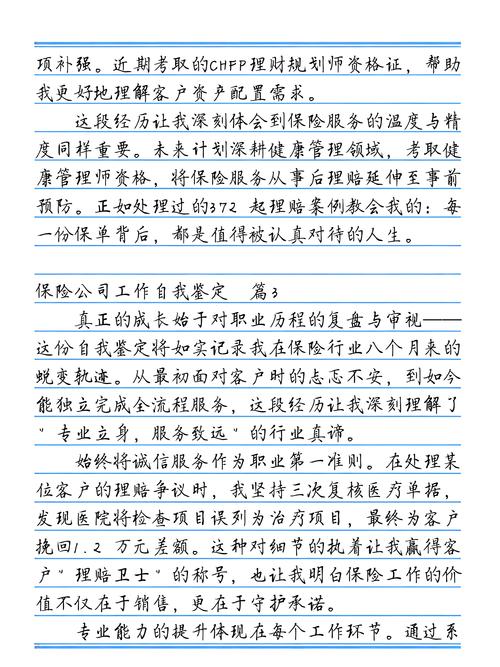 项补强。近期考取的CHFP理财规划师资格证，帮助
我更好地理解客户资产配置需求。
这段经历让我深刻体会到保险服务的温度与精
度同样重要。未来计划深耕健康管理领域，考取健
康管理师资格，将保险服务从事后理赔延伸至事前
预防。正如处理过的372 起理赔案例教会我的：每
一份保单背后，都是值得被认真对待的人生。
保险公司工作自我鉴定 篇3
真正的成长始于对职业历程的复盘与审视——
这份自我鉴定将如实记录我在保险行业八个月来的
蜕变轨迹。从最初面对客户时的忐忑不安，到如今
能独立完成全流程服务，这段经历让我深刻理解了
"专业立身，服务致远"的行业真谛。
始终将诚信服务作为职业第一准则。在处理某
位客户的理赔争议时，我坚持三次复核医疗单据，
发现医院将检查项目误列为治疗项目，最终为客户
挽回1.2 万元差额。这种对细节的执着让我赢得客
户"理赔卫士"的称号，也让我明白保险工作的价
值不仅在于销售，更在于守护承诺。
专业能力的提升体现在每个工作环节。通过系